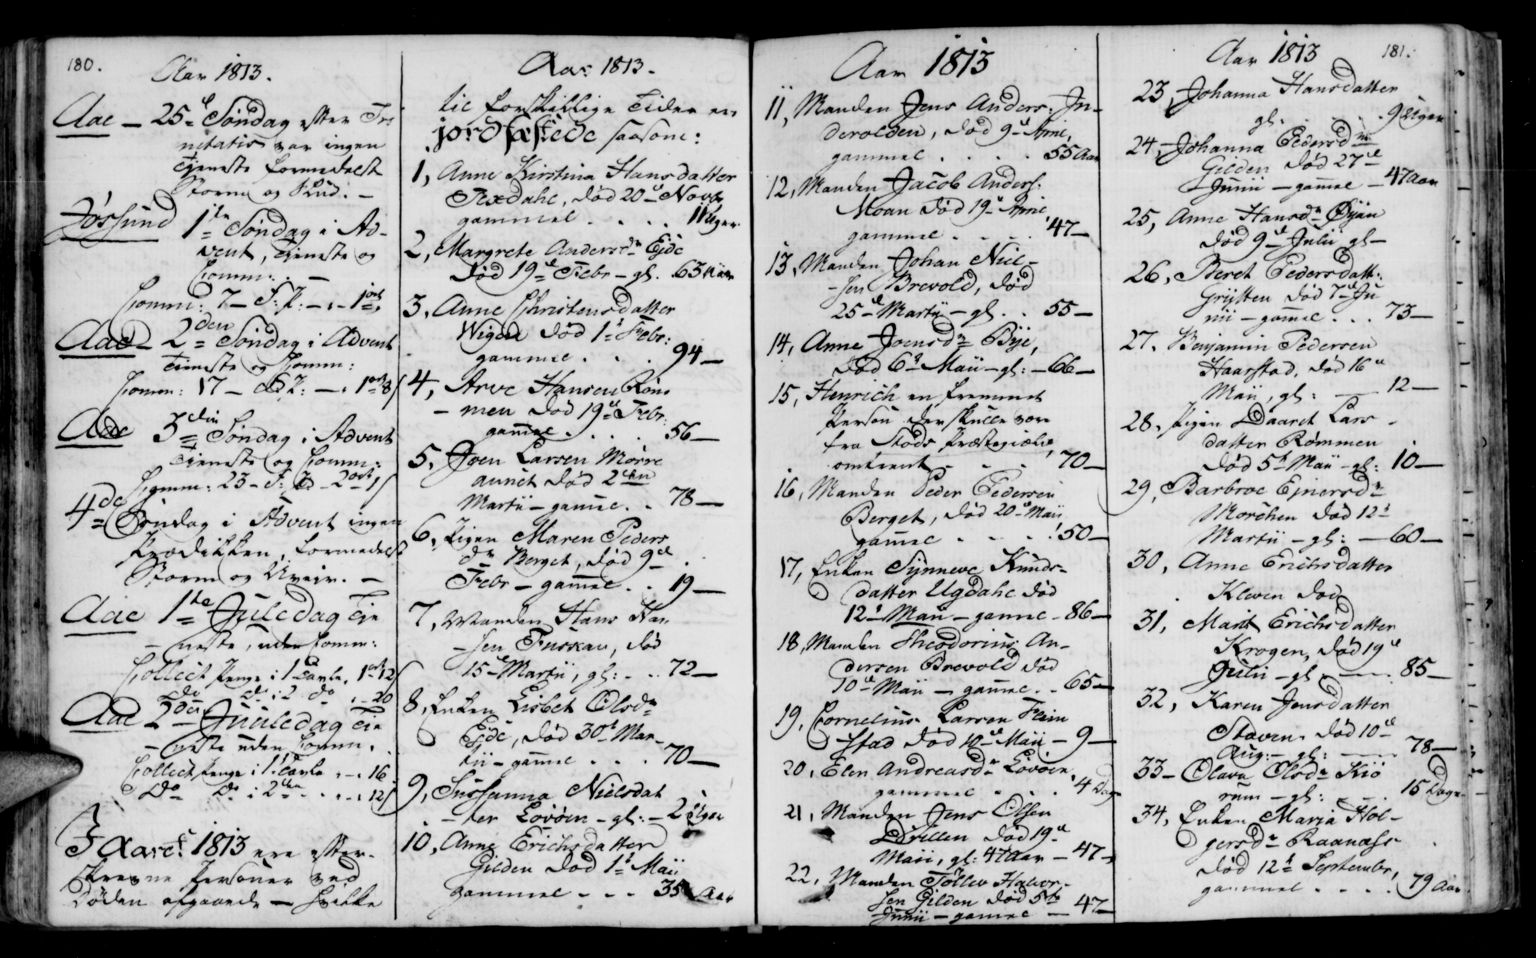 180.
Aar 1813.
Aae — 25de Søndag efter Tri
nitatis var ingen
Tieneste formedelst
Storm og
Jøssund 1ste Søndag i Ad-
vent, Tieneste og
Comm: —
Comm: 7 —
Aae — 2den Søndag i Advent
Tieneste og Comm:
Comm: 17 —
Aae 3die Søndag i Advent
Tieneste og Comm:
Comm: 23 —
4de Søndag i Advent ingen
Prædikken, formedelst
Storm og Uveir. —
Aae 1ste Juledag Tie
neste, uden Comm:
Collect Penge i 1 Tavle,
do do i 2 do 20
Aae 2den Juuledag Tie
neste uden Comm.
Collect Penge i 1 Tavle . . 16
Do Do i 2den . . . 12
I Aaret 1813 ere efter-
skrevne Personer ved
Døden afgaaede — hvilke
Aar 1813.
til forskillige Tider ere
jordfæstede saasom:
1, Anne Kirstina Hansdatter
Død 20de Novbr
gammel . . . . 11 Uger
2, Margrete Andersdr Eide
Død 19de Febr — gl. 63 Aar
3, Anne Christensdatter
Død 1ste Febr:
gammel . . . 94 —
4, Arve Hansen
død 19de Febr:
gammel . . . . 56 —
5, Joen Larsen Morre
aunet død 2den
Martii — gammel . . 78 —
6, Pigen Maren Peders
dr Berget, død 9de
Febr — gammel . 19 —
7, Manden Hans Han
sen død
15de Martii, gl: . . 72 —
8, Enken Lisbet Olsdr
Eide, død 30te Mar
tii — gammel . . . 70 —
9, Sussanna Nielsdat
ter Lovøen — gl: — 2 Uger
10, Anne Erichsdatter
Gilden død 1ste Maii
gammel - - - 35 Aar
Aar 1813
11, Manden Jens Anders: In-
derolden, død 9de
gammel . . . . 55 Aar
12, Manden Jacob Anders:
Moan død 19de
gammel . . . . 47 —
13, Manden Johan Niel-
sen Brevold, død
25de Martii — gl . . 55 —
14, Anne Joensdr Bye,
Død 6te Maii — gl: — 66 —
15, Henrich en fremmet
Person der skulle være
fra Stods Præstegiæld,
omtrent - - - 70 —
16, Manden Peder Pedersen
Berget, død 20de Maii
gammel - - - - 50 —
17, Enken Synneve Knuds-
datter Ugdahl død
12te Maii — gammel — 86 —
18, Manden Theodorius An-
dersen Brevold død
10de Maii — gammel . . 65 —
19, Cornelius Larsen
stad død 10de Maii — 9 —
20, Elen Andreasdr Lovøen,
gammel . . . . 4 Dage
21, Manden Jens Olsen
død 19de
Maii, gl: 47 Aar — 47 —
22, Manden Tøllev Halvor-
sen Gilden død 5te
Junii — gammel — 47 —
Aar 1813
181.
23, Johanna Hansdatter
gl. . . . . 9 Uger
24, Johanna Pedersdr
Gilden død 27de
Junii — gammel — 47 Aar
25, Anne Hansdr Øyan
død 9de Julii gl —
26, Beret Pedersdatt:
Grytten død 7de Ju
nii — gammel . . . 73 —
27. Benjamin Pedersen
Haarstad, død 16de
Maii, gl: — 12 —
28. Pigen Daaret Lars-
datter Rømmen
død 5te Maii — gl: 10 —
29, Barbroe Ejnersdr
død 12te
Martii — gl: — 60 —
30, Anne Erichsdatter
Kleven død
31, Marit Erichsdatter
Krogen, død 19de
Julii — gl — 85 —
32, Karen Jensdatter
Staven, død 10de
Aug: — gl: — 78 —
33 — Olava Olsdr Kiø
rum — gl: — 15 Dage
34, Enken Maria Hol-
gersdr Raanaas
død 12te September,
gammel . . . . 79 Aar